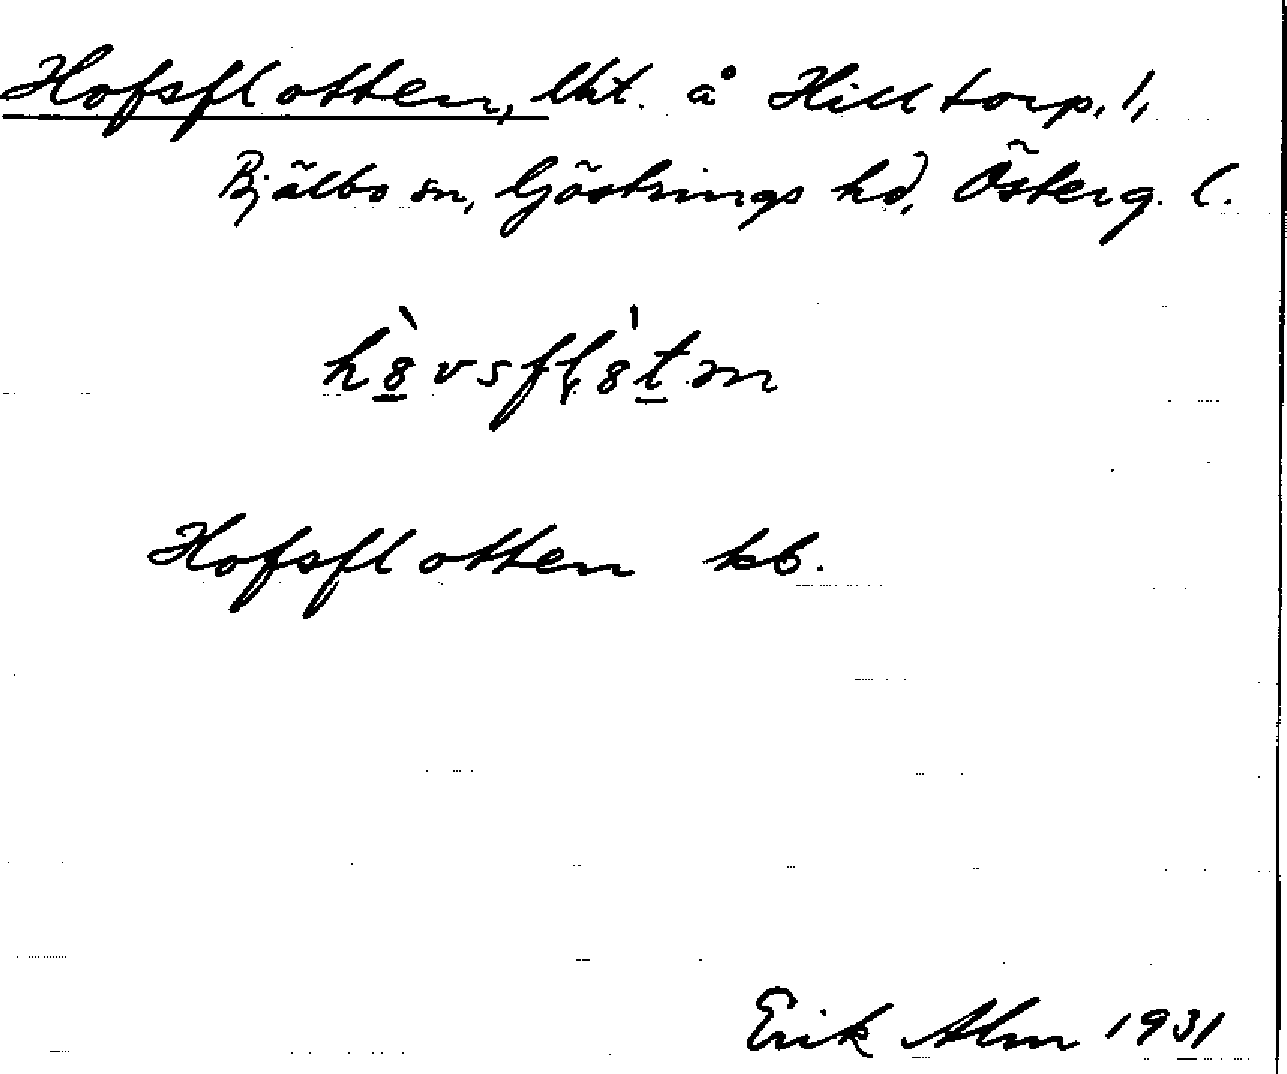 Hofsflotten, lht. å Hilltorp, 1,
Bjälbo sn, Göstrings hd, Österg. l.
h8̀vsfl8̍tn
Hofsflotten kb.
Erik Alm 1931